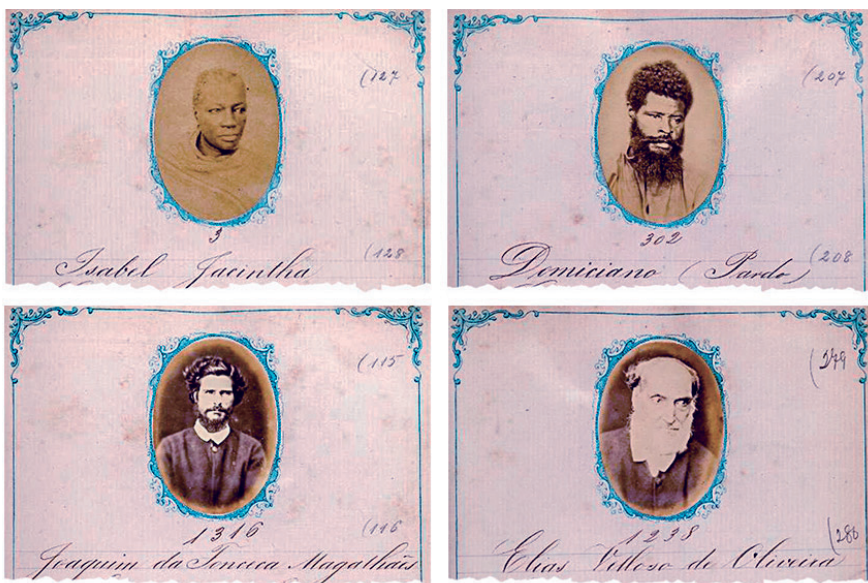 (127
3
(128
Isabel Jacintha
(207
302
(208
Domiciano (Pardo)
(115
1316
(116
Joaquim da Fonceca Magalhães
(279
1238
(280
Elias Velloso de Oliveira